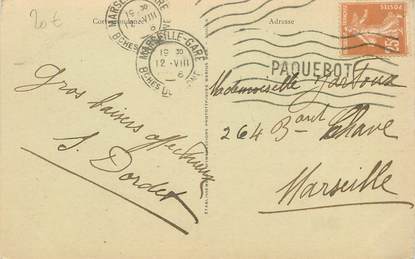 20€
Correspondance
Adresse
MARSEILLE-GARE
19 30
12 - VIII
Bches DU RHONE
MARSEILLE-GARE
19 30
12 - VIII
6
Bches DU RHONE
POSTES
25c
PAQUEBOT
Mademoiselle
264 Bard Chave
Marseille
Gros baisers affectueux
S. Dordet